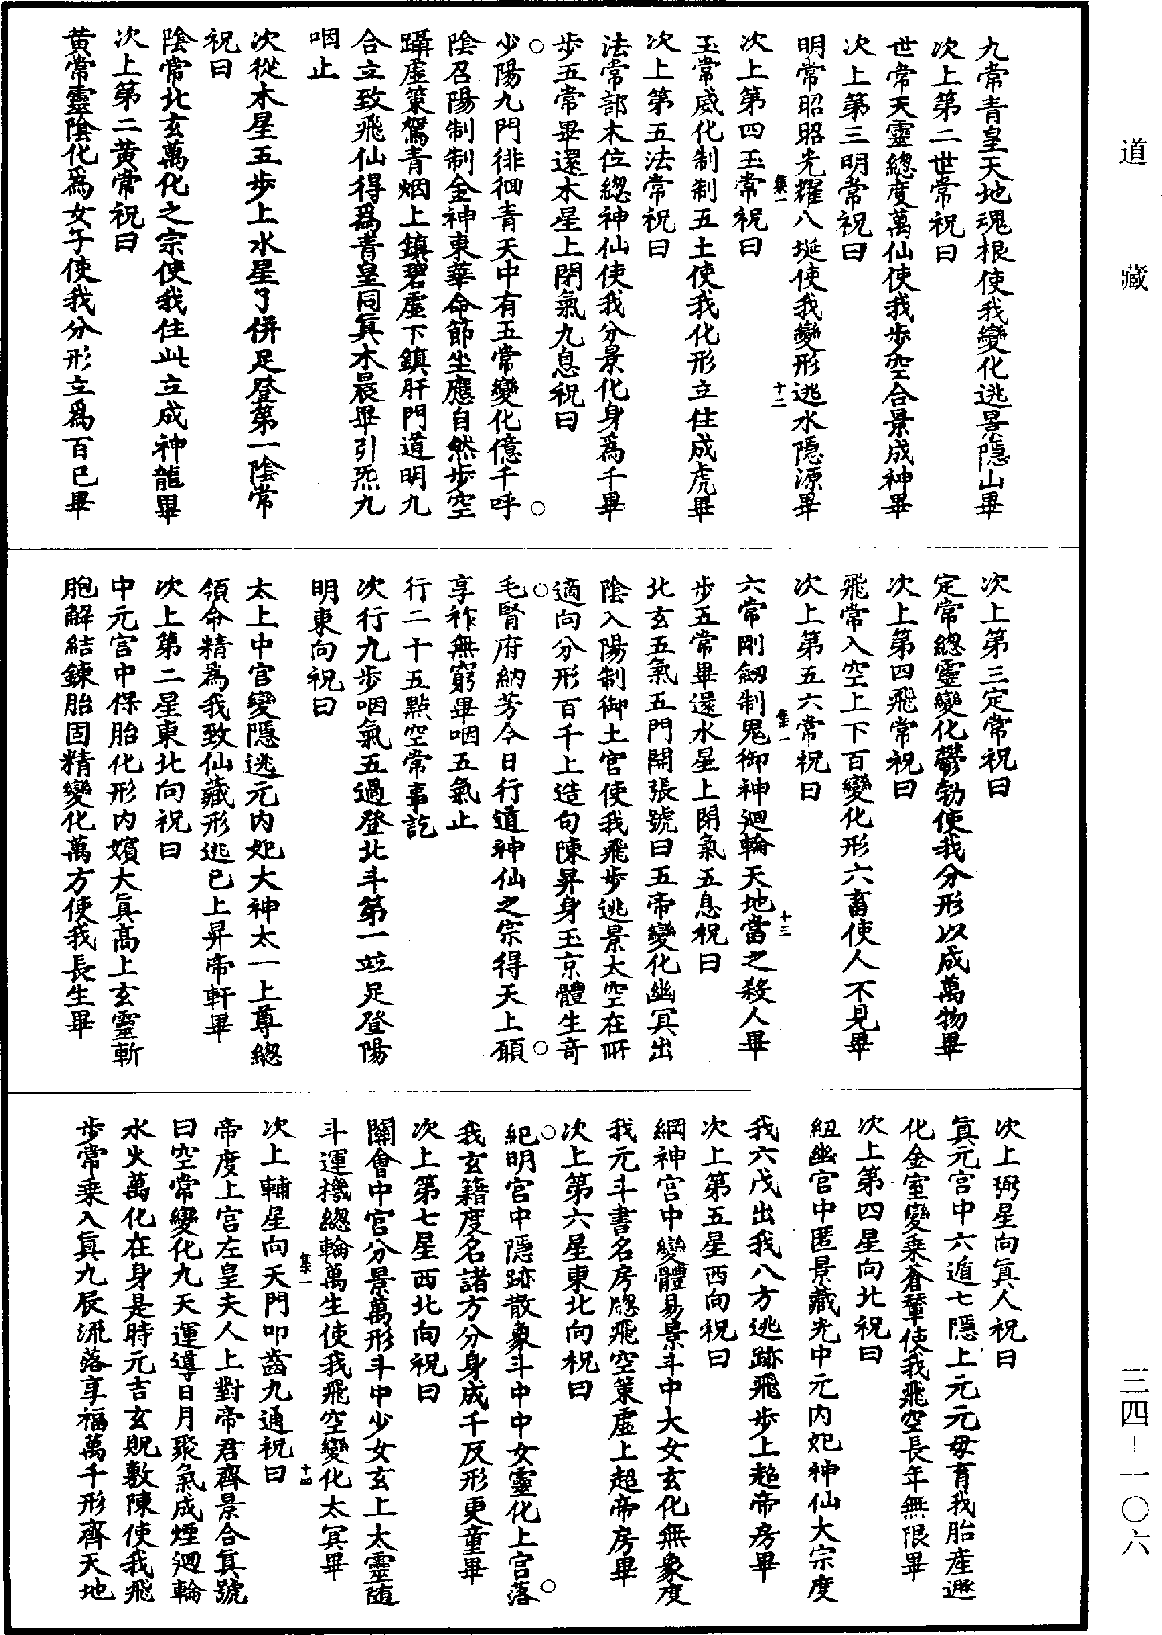 道藏
九常青皇天地魂根使我變化逃晷隱山畢
次上第二世常祝曰
世常天靈總度萬仙使我步空合景成神畢
次上第三明常祝曰
明常昭昭光耀八埏使我變形逃水隱源畢
集一 十二
次上第四玉常祝曰
玉常威化制制五土使我化形立住成虎畢
次上第五法常祝曰
法常部木位總神仙使我分景化身爲千畢
步五常畢還木星上閉氣九息祝曰
少陽九門徘徊青天中有五常變化億千呼
陰召陽制制金神東華命節坐應自然步空
躡虛策駕青烟上鎮碧虛下鎮肝門道明九
合立致飛仙得爲青皇同真木晨畢引炁九
咽止
次從木星五步上水星了併足登第一陰常
祝曰
陰常北玄萬化之宗使我住此立成神龍畢
次上第二黃常祝曰
黃常靈陰化爲女子使我分形立爲百已畢
次上第三定常祝曰
定常總靈變化鬱勃使我分形以成萬物畢
次上第四飛常祝曰
飛常入空上下百變化形六畜使人不見畢
次上第五六常祝曰
集一 十三
六常剛劒制鬼御神迴輪天地當之殺人畢
步五常畢還水星上閉氣五息祝曰
北玄五氣五門開張號曰五帝變化幽冥出
陰入陽制御土官使我飛步逃景太空在所
適向分形百千上造句陳昇身玉京體生奇
毛腎府納芳今日行道神仙之宗得天上願
享祚無窮畢咽五氣止
行二十五點空常事訖
次行九步咽氣五過登北斗第一竝足登陽
明東向祝曰
太上中官變隱逃元內妃大神太一上尊總
領命精爲我致仙藏形逃已上昇帝軒畢
次上第二星東北向祝曰
中元宫中保胎化形內嬪大真高上玄靈斬
胞解結鍊胎固精變化萬方使我長生畢
次上弼星向真人祝曰
真元宫中六遁七隱上元元母育我胎產遯
化金室變乘蒼輦使我飛空長年無限畢
次上第四星向北祝曰
紐幽宫中匿景藏光中元內妃神仙大宗度
我六戊出我八方逃跡飛步上超帝房畢
次上第五星西向祝曰
綱神宫中變體易景斗中大女玄化無象度
我元斗書名房牎飛空策虛上超帝房畢
次上第六星東北向祝曰
紀明宫中隱跡散象斗中中女靈化上宫落
我玄籍度名諸方分身成千反形更童畢
次上第七星西北向祝曰
關會中官分景萬形斗中少女玄上太靈隨
斗運機總輪萬生使我飛空變化太冥畢
集一 十四
次上輔星向天門叩齒九通祝曰
帝度上宫左皇夫人上對帝君齊景合真號
曰空常變化九天運導日月聚氣成煙迴輪
水火萬化在身是時元吉玄貺敷陳使我飛
步常乘入真九辰流落享福萬千形齊天地
三四—一〇六